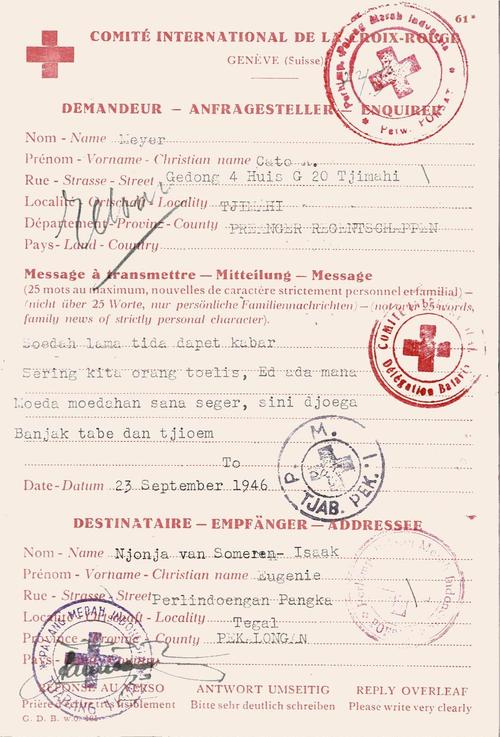 61*
COMITÉ INTERNATIONAL DE LA CROIX-ROUGE
GENÈVE (Suisse)
DEMANDEUR — ANFRAGESTELLER — ENQUIRER
Nom - Name Meyer
Prénom - Vorname - Christian name Cato A.
Rue - Strasse - Street Gedong 4 Huis G 20 Tjimahi
Localité - Ortschaft - Locality TJIMAHI
Département - Provinz - County PREANGER REGENTSCHAPPEN
Pays - Land - Country
Message à transmettre — Mitteilung — Message
(25 mots au maximum, nouvelles de caractère strictement personnel et familial) —
(nicht über 25 Worte, nur persönliche Familiennachrichten) — (not over 25 words,
family news of strictly personal character).
Soedah lama tida dapet kabar
Sering kita orang toelis, Ed ada mana
Moeda moedahan sana seger, sini djoega
Banjak tabe dan tjioem
To
Date - Datum 23 September 1946
P. M. I.
TJAB. PEK.
DESTINATAIRE — EMPFÄNGER — ADDRESSEE
Nom - Name Njonja van Someren- Isaak
Prénom - Vorname - Christian name Eugenie
Rue - Strasse - Street Perlindoengan Pangka
Localité - Ortschaft - Locality Tegal
Province - Provinz - County PEKALONGAN
Pays -
PALANG MERAH INDONESIA
RÉPONSE AU VERSO ANTWORT UMSEITIG REPLY OVERLEAF
Prière d'écrire très lisiblement Bitte sehr deutlich schreiben Please write very clearly
G. D. B. w.o.